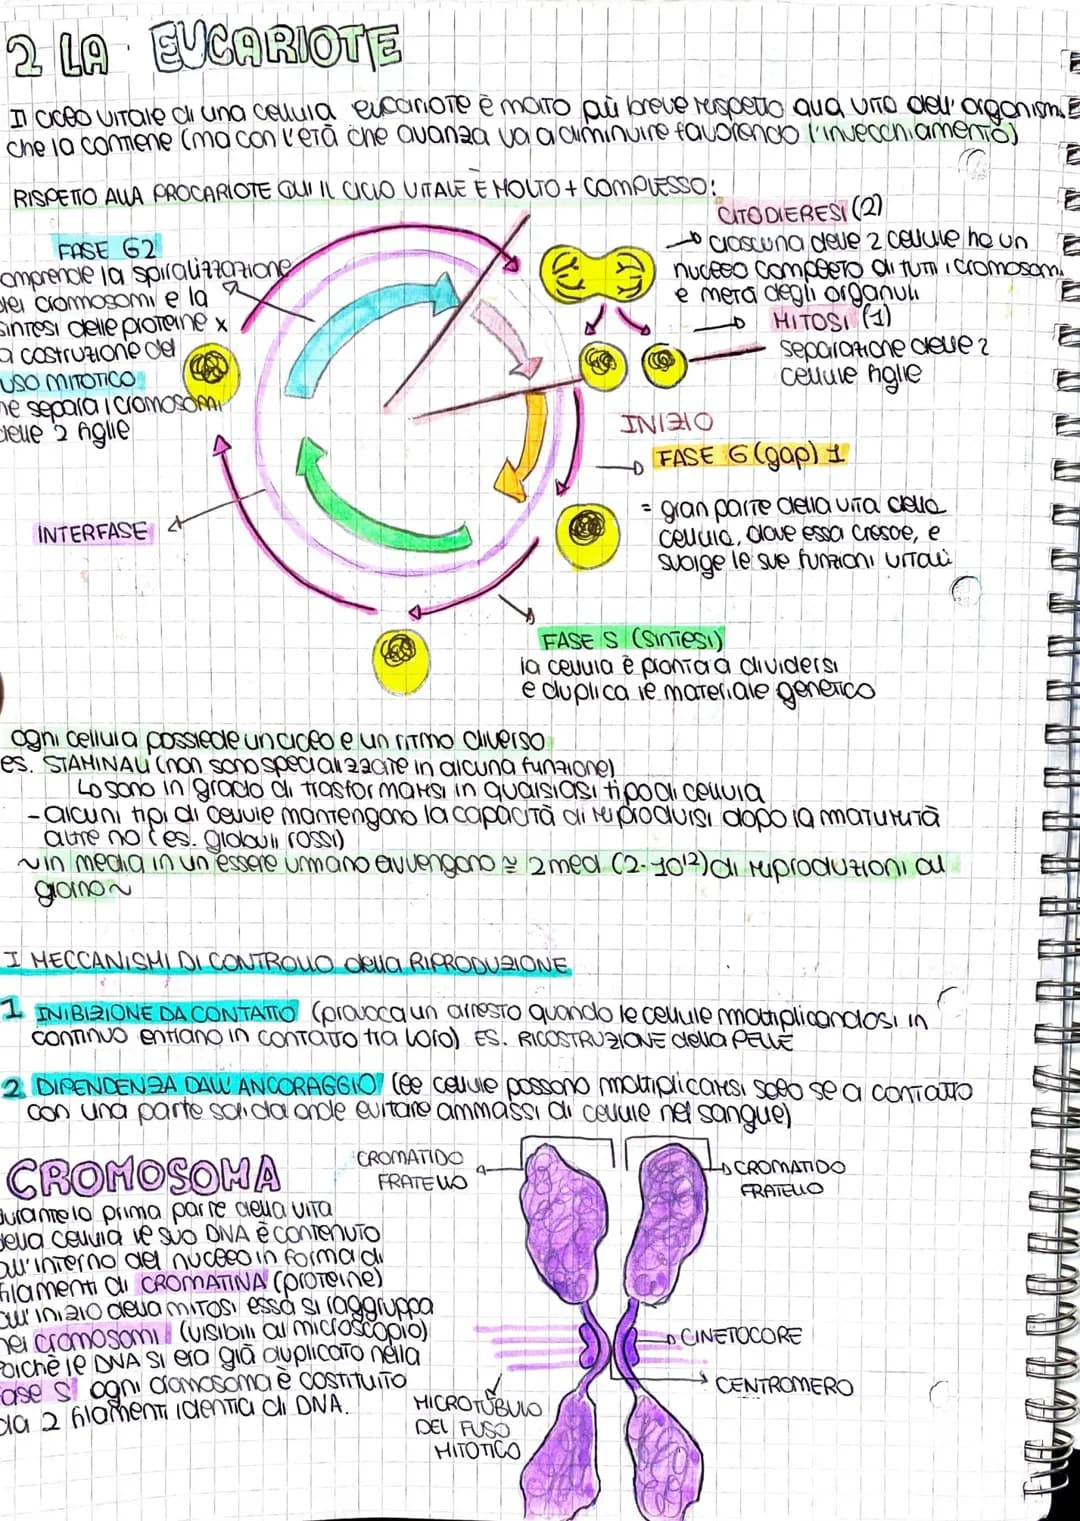 2 LA EUCARIOTE
Il ciclo vitale di una cellula eucariote è molto più breve rispetto alla vita dell'organism
che la contiene (ma con l'età che avanza va a diminuire favorendo l'invecchiamento)
RISPETTO ALLA PROCARIOTE QUI IL CICLO VITALE È MOLTO + COMPLESSO:
FASE G2
omprende la spiralizzazione
dei cromosomi e la
sintesi delle proteine x
a costruzione del
USO MITOTICO
he separa i cromosomi
delle 2 figlie
INTERFASE
CITODIERESI (2)
ciascuna delle 2 cellule ha un
nucleo completo di tutti i cromosom
e metà degli organuli
MITOSI (1)
separazione delle 2
cellule figlie
INIZIO
FASE G (gap) 1
= gran parte della vita della
cellula, dove essa cresce, e
svolge le sue funzioni vitali
FASE S (sintesi)
la cellula è pronta a dividersi
e duplica il materiale genetico
ogni cellula possiede un ciclo e un ritmo diverso
es. STAMINALI (non sono specializzate in alcuna funzione)
↳ sono in grado di trasformarsi in qualsiasi tipo di cellula
- alcuni tipi di cellule mantengono la capacità di riprodursi dopo la maturità
altre no (es. globuli rossi)
~ in media in un essere umano avvengono ≅ 2 med (2·10¹²) di riproduzioni al
giorno ~
I MECCANISMI DI CONTROLLO della RIPRODUZIONE
1 INIBIZIONE DA CONTATTO (provoca un arresto quando le cellule moltiplicandosi in
continuo entrano in contatto tra loro) ES. RICOSTRUZIONE della PELLE
2 DIPENDENZA DALL'ANCORAGGIO (le cellule possono moltiplicarsi solo se a contatto
con una parte solida onde evitare ammassi di cellule nel sangue)
CROMOSOMA
durante la prima parte della vita
della cellula il suo DNA è contenuto
all'interno del nucleo in forma di
filamenti di CROMATINA (proteine)
all'inizio della mitosi essa si raggruppa
nei cromosomi (visibili al microscopio)
poichè il DNA si era già duplicato nella
fase S ogni cromosoma è costituito
da 2 filamenti identici di DNA.
CROMATIDO
FRATELLO
CROMATIDO
FRATELLO
CINETOCORE
CENTROMERO
MICROTUBULO
DEL FUSO
MITOTICO